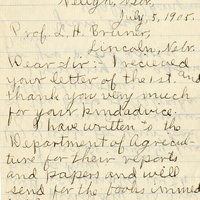 Neligh, Nebr.
July, 5, 1905.
Prof. L. H. Bruner,
Lincoln, Nebr.
Dear Sir: I recieved
your letter of the 1st. and
thank you very much
for your kind advice.
have written to the
Department of Agricul-
ture for their reports
and papers and will
send for the books immed